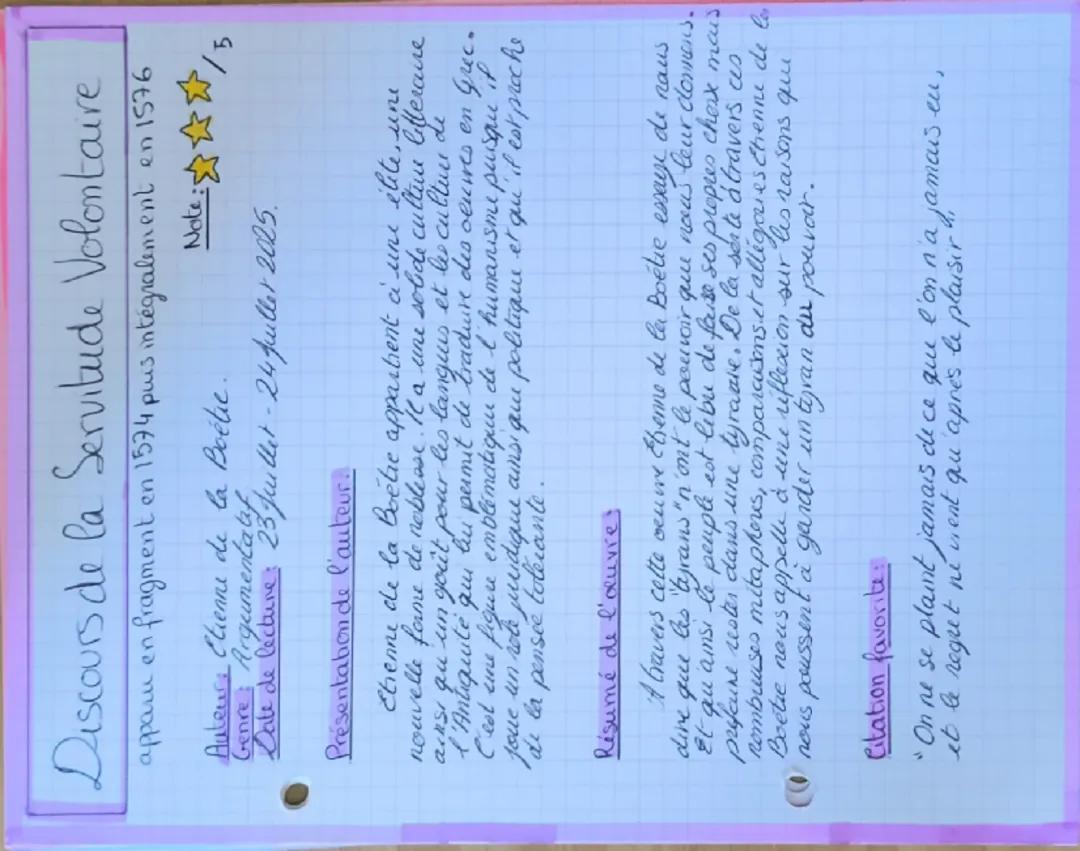 Discours de la Servitude Volontaire
apparu en fragment en 1574 puis intégralement en 1576
Note : /5
Auteur : Etienne de la Boétie.
Genre : Argumentatif
Date de lecture : 23 Juillet - 24 Juillet 2025.
Présentation de l'auteur :
Etienne de la Boétie appartient à une élite, une
nouvelle forme de noblesse. Il a une solide culture littéraire
ainsi qu'un goût pour les langues et les culture de
l'Antiquité qui lui permit de traduire des oeuvres en Grec.
C'est une figure emblématique de l'humanisme puisqu'il
joue un role juridique ainsi que politique et qu'il est proche
de la pensée tolérante.
Résumé de l'oeuvre :
A travers cette oeuvre Etienne de la Boétie essaye de nous
dire que les "tyrans" n'ont le pouvoir que nous leur donnons.
Et qu'ainsi le peuple est libre de faire ses propres choix mais
préfère rester dans une tyranie. De la sorte à travers ces
nombreuses métaphores, comparaisons et allégories Etienne de la
Boétie nous appelle à une réflexion sur les raisons qui
nous poussent à garder un tyran au pouvoir.
Citation favorite :
"On ne se plaint jamais de ce que l'on n'a jamais eu,
et le regret ne vient qu'après le plaisir",